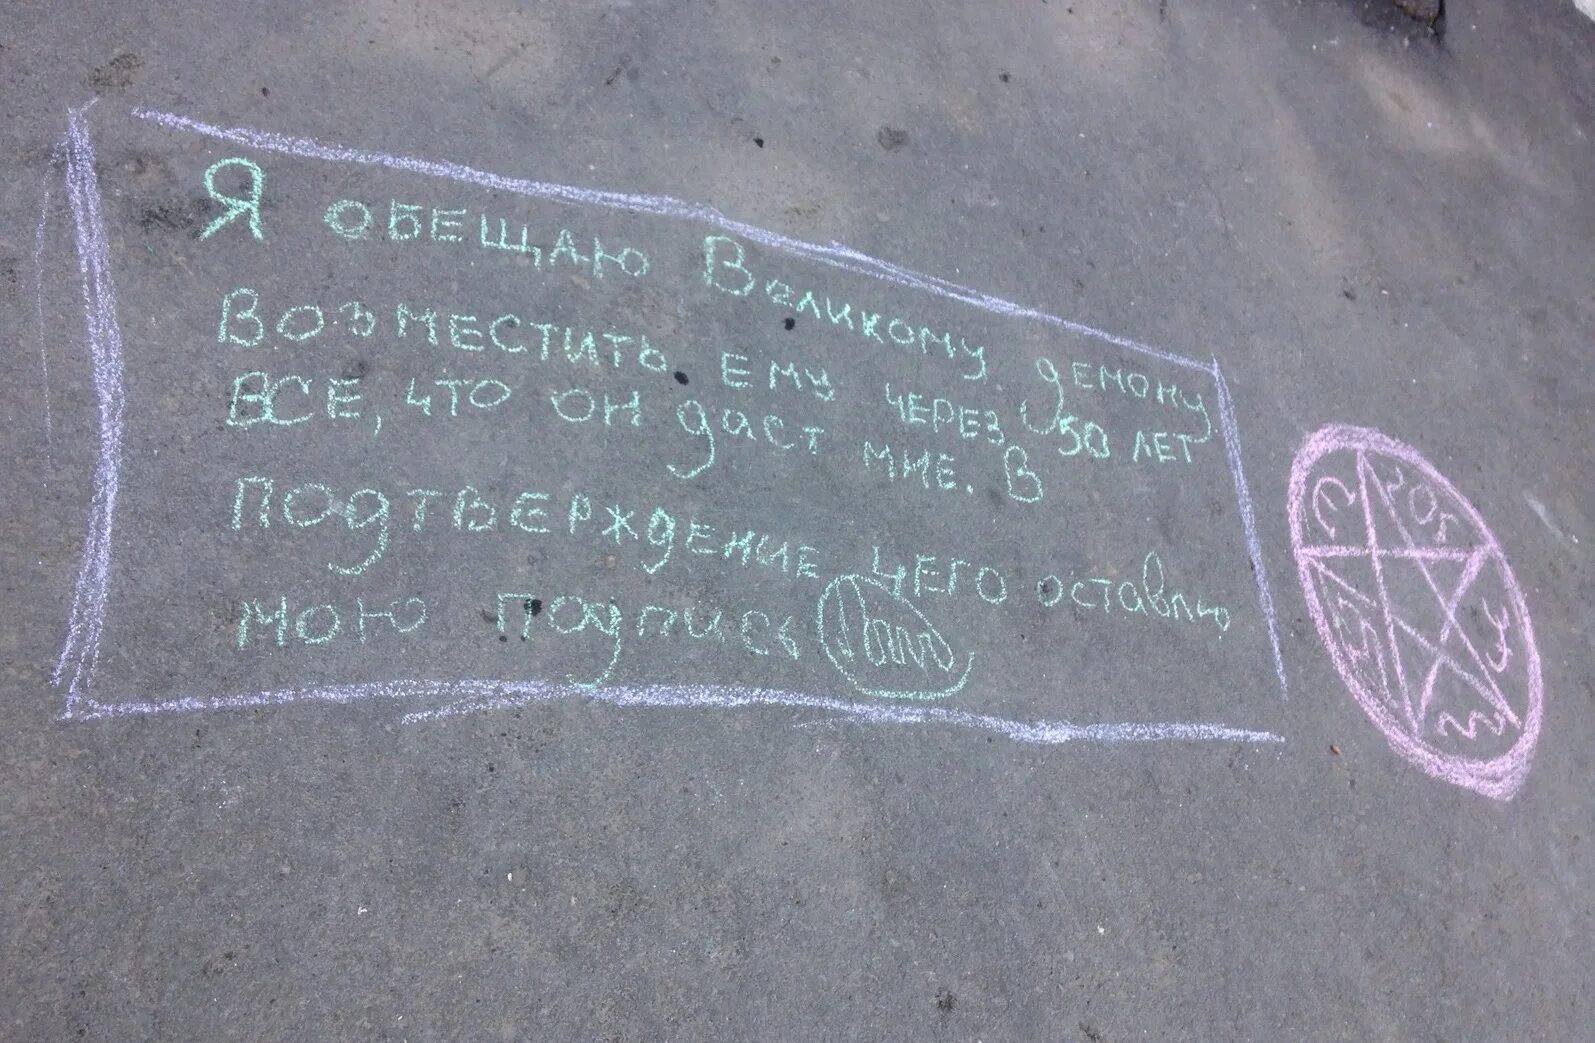 Я ОБЕЩАЮ Великому демону
ВОЗМЕСТИТЬ ЕМУ ЧЕРЕЗ 50 ЛЕТ
ВСЕ, ЧТО ОН даст МНЕ. В
ПОДТВЕРЖДЕНИЕ ЧЕГО оставлю
МОЮ подпись